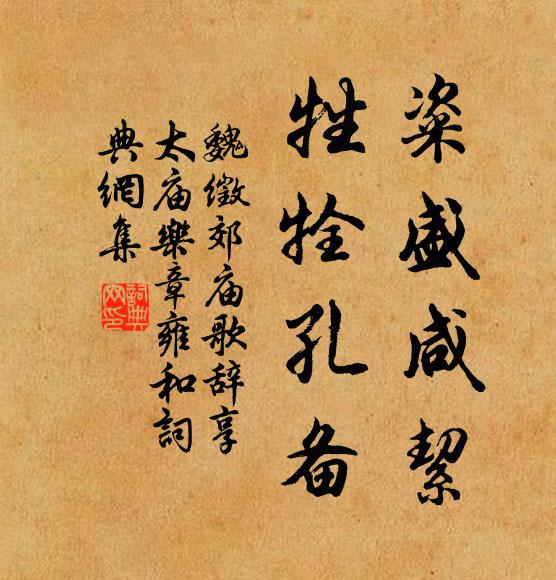 粢盛咸絜
牲牷孔备
魏徵郊庙歌辞享
太庙樂章雍和詞
典網集
詞典
网印